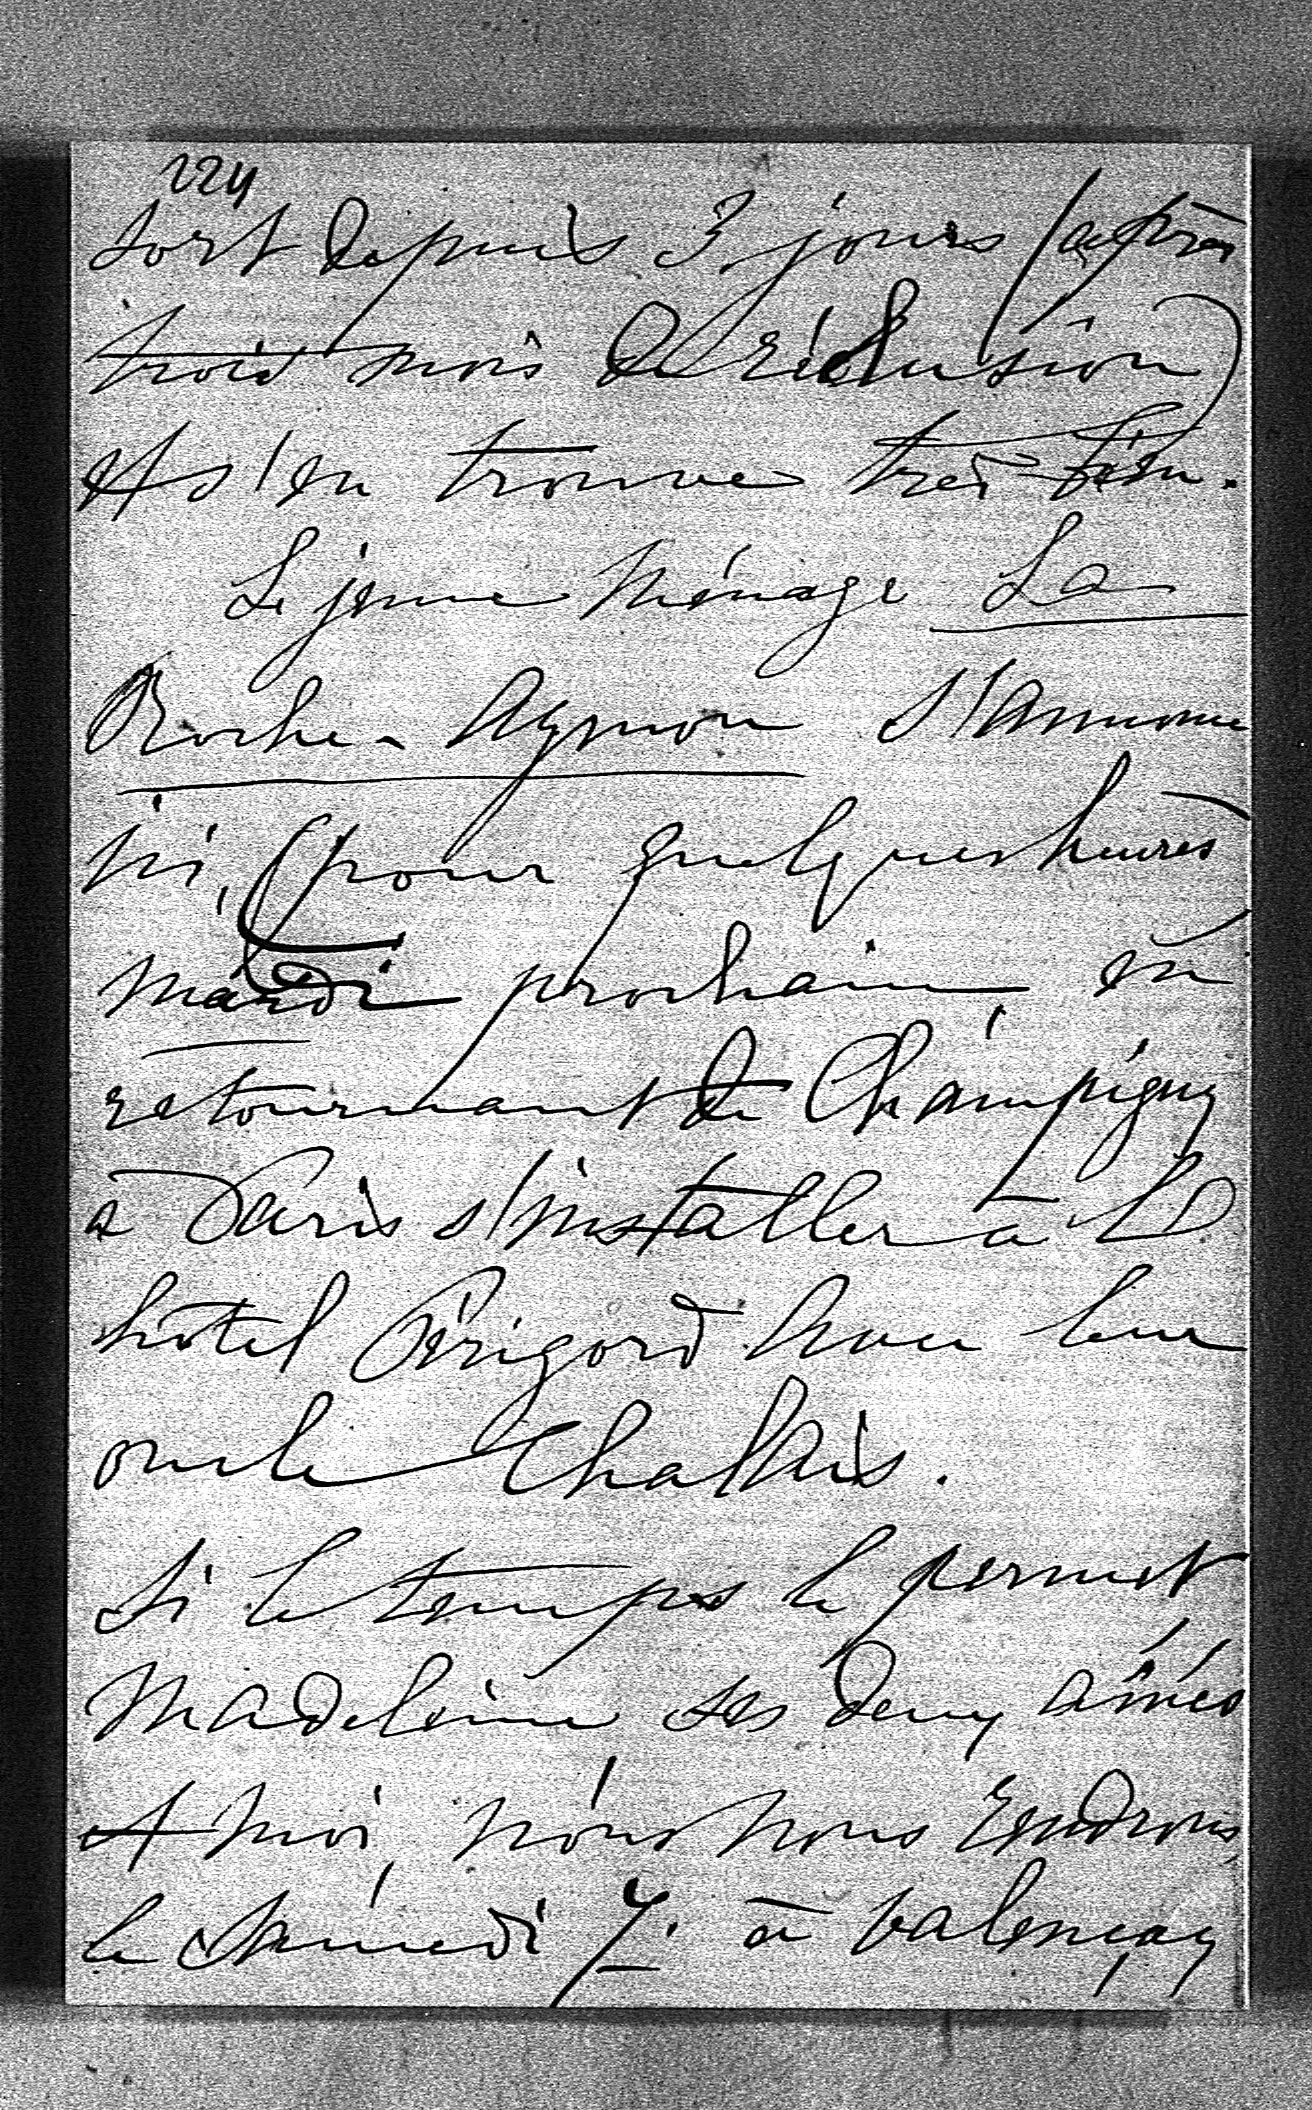 224
sort depuis 3 jours (après
trois mois de réclusion)
et s'en trouve très bien.
Le jeune ménage La
Roche-Aymon s'annonce
ici, (pour quelques heures
mardi prochain, en
retournant de Champigny
à Paris s'installer à
hôtel Périgord avec leur
oncle Challais.
Si le temps le permet
Madeleine ses deux aînés
et moi, nous nous rendrons
le Samedi 7. à Valençay